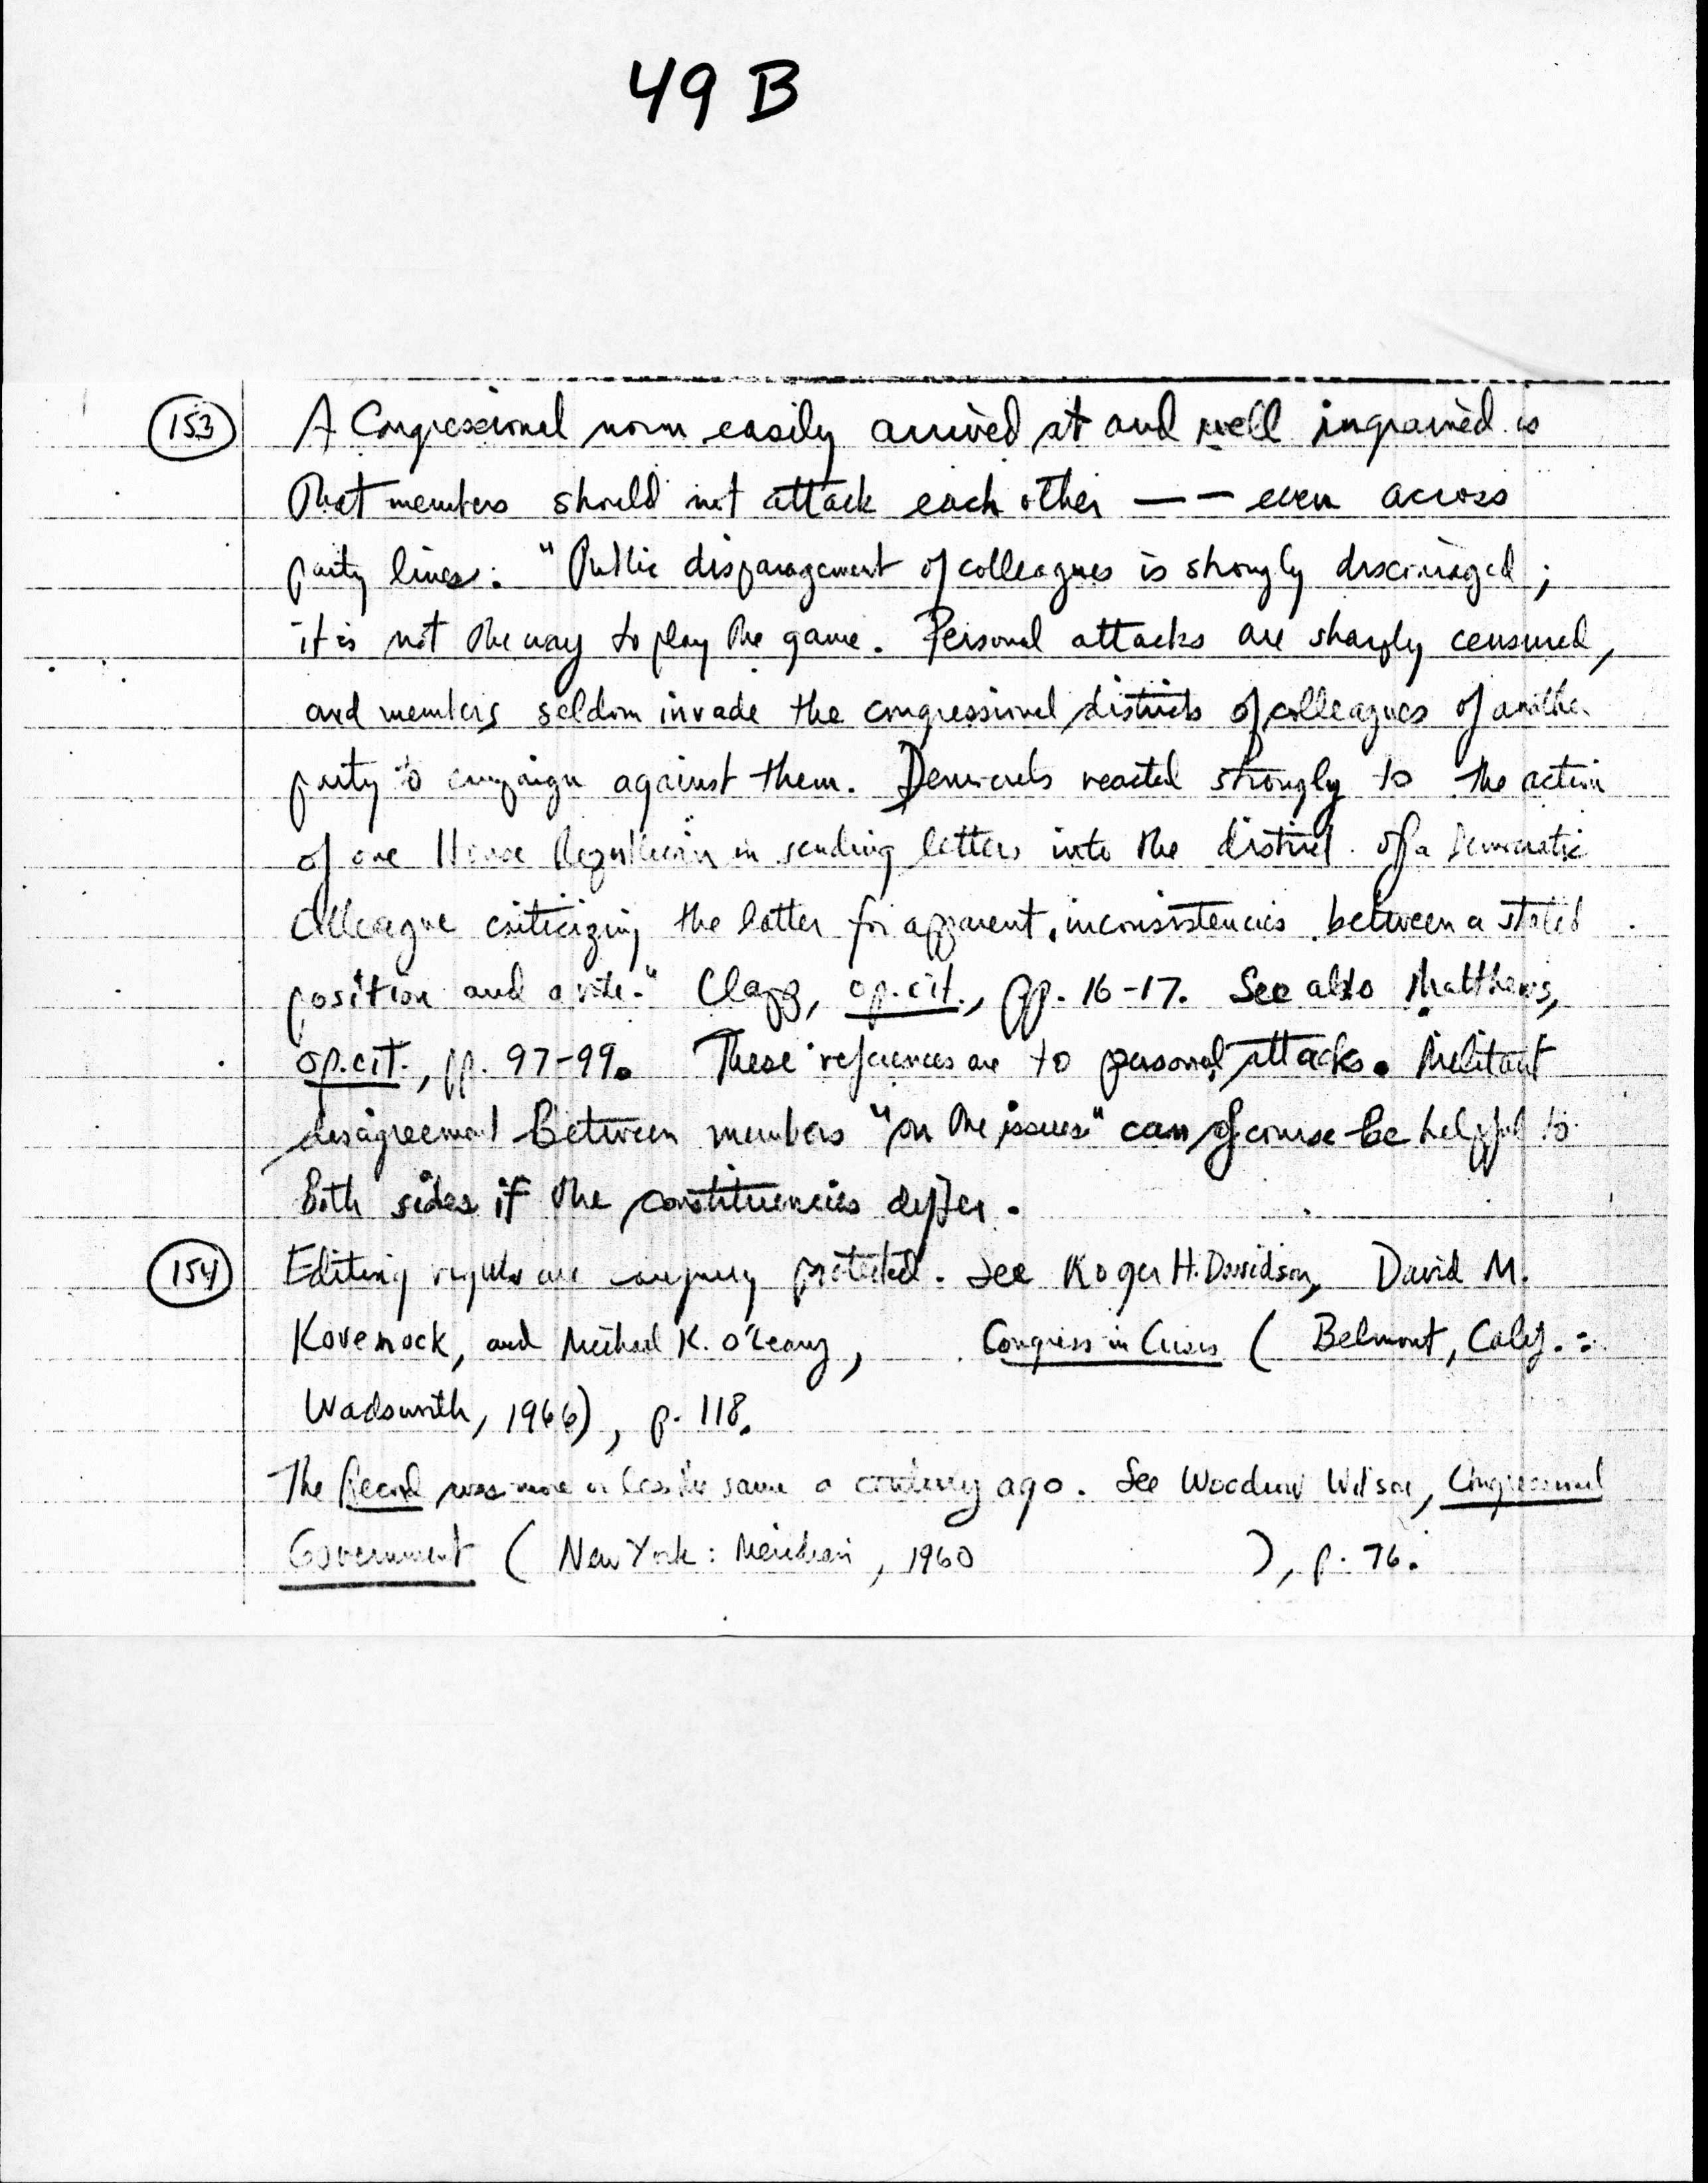 49 B
153 A Congressional norm easily arrived at and well ingrained is
that members should not attack each other -- even across
party lines: "Public disparagement of colleagues is strongly discouraged;
it is not the way to play the game. Personal attacks are sharply censured,
and members seldom invade the congressional districts of colleagues of another
party to campaign against them. Democrats reacted strongly to the action
of one House Republican in sending letters into the district of a Democratic
colleague criticizing the latter for apparent inconsistencies between a stated
position and a vote." Clapp, op. cit., pp. 16-17. See also Matthews,
op. cit., pp. 97-99. These references are to personal attacks. Militant
disagreement between members "on the issues" can of course be helpful to
both sides if the constituencies differ.
154 Editing rights are protected. See Roger H. Davidson, David M.
Kovenock, and Michael K. O'Leary, Congress in Crisis (Belmont, Calif.:
Wadsworth, 1966), p. 118.
The Record was more or less the same a century ago. See Woodrow Wilson, Congressional
Government (New York: Meridian, 1960 ), p. 76.